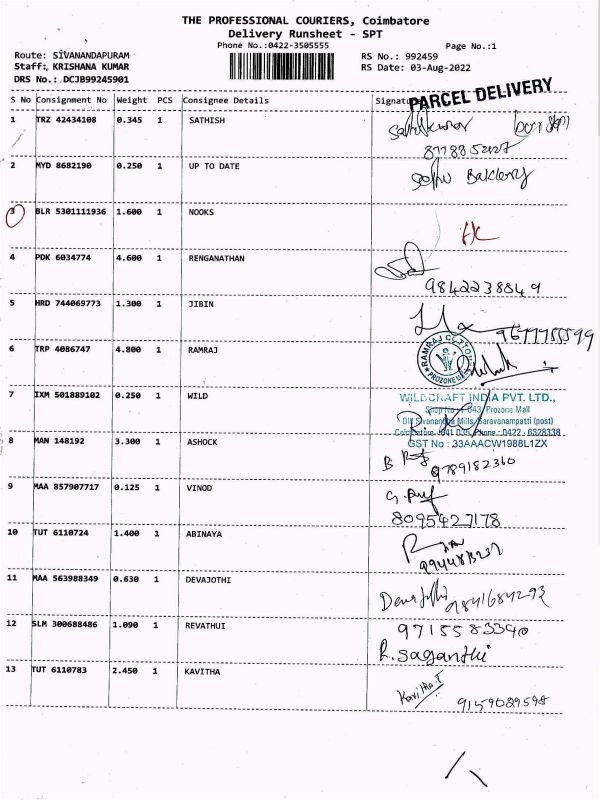 THE PROFESSIONAL COURIERS, Coimbatore
Delivery Runsheet - SPT
Phone No.:0422-3505555
Page No.:1
Route: SIVANANDAPURAM
RS No.: 992459
Staff: KRISHANA KUMAR
RS Date: 03-Aug-2022
DRS No.: DCJB99245901
PARCEL DELIVERY
S No Consignment No Weight PCS Consignee Details
1 TRZ 42434108 0.345 1 SATHISH
2 MYD 8682190 0.250 1 UP TO DATE
3 BLR 5301111936 1.600 1 NOOKS
4 PDK 6034774 4.600 1 RENGANATHAN
9842238849
5 HRD 744069773 1.300 1 JIBIN
6 TRP 4086747 4.800 1 RAMRAJ
RAMRAJ COTTON
7 IXM 501889102 0.250 1 WILD
WILDCRAFT INDIA PVT. LTD.,
Prozone Mall
Mills, Saravanampatti (post)
Phone : 0422 - 6328338
GST No : 33AAACW1988L1ZX
8 MAN 148192 3.300 1 ASHOCK
9789182360
9 MAA 857907717 0.125 1 VINOD
8095427178
10 TUT 6110724 1.400 1 ABINAYA
11 MAA 563988349 0.630 1 DEVAJOTHI
9841684293
12 SLM 300688486 1.090 1 REVATHUI
9715583390
R. Saganthi
13 TUT 6110783 2.450 1 KAVITHA
Kavitha.I
9159029598